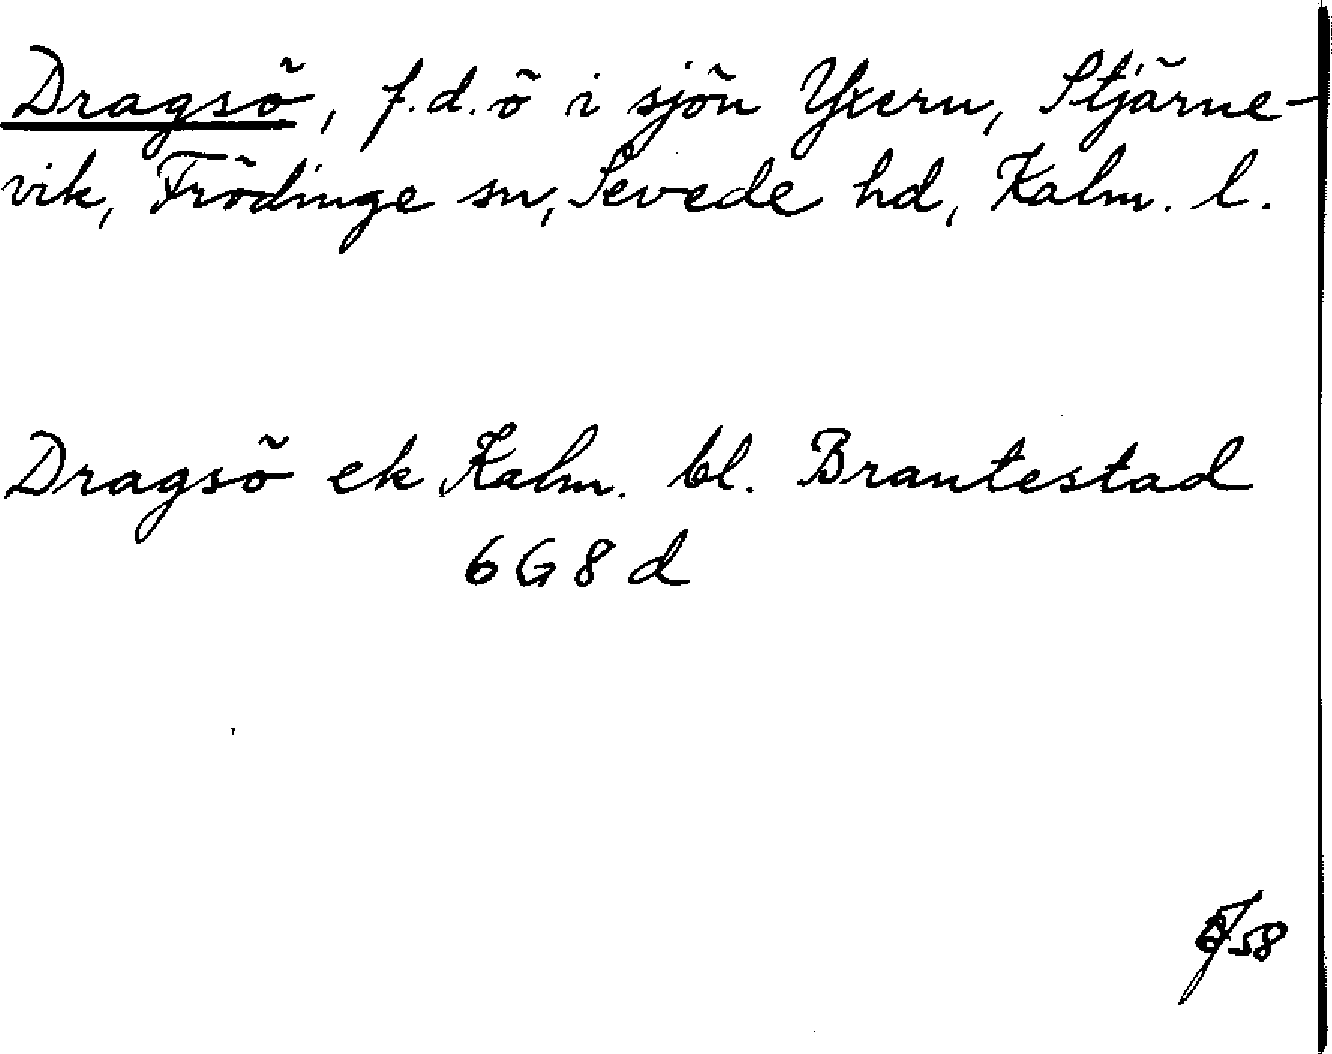 Dragsö, f.d. ö i sjön Yxern, Stjärne-
vik, Frödinge sn, Sevede hd, Kalm. l.
Dragsö ek Kalm. bl. Brantestad
6 G 8 d
58